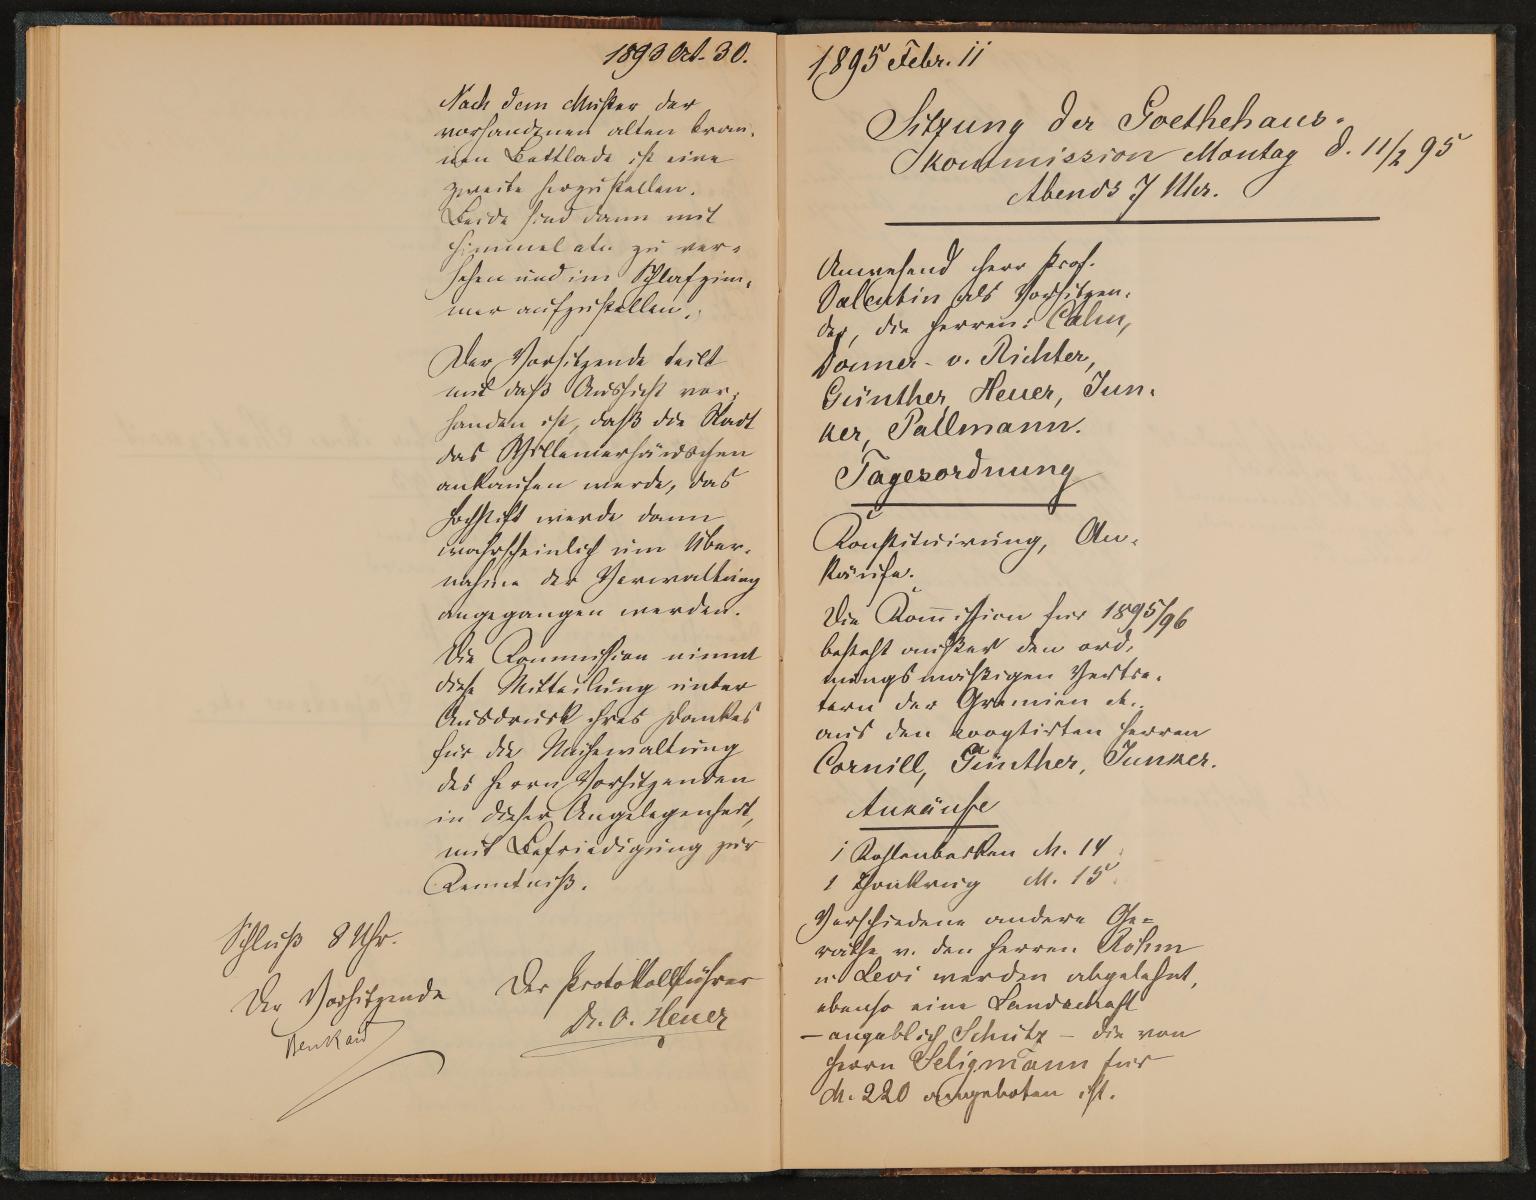 1893 Oct. 30.
Nach dem Muster der
vorhandenen alten brau-
nen Bettlade ist eine
zweite herzustellen.
Beide sind dann mit
Himmel etc. zu ver-
sehen und im Schlafzim-
mer aufzustellen.
Der Vorsitzende teilt
mit daß Aussicht vor-
handen ist, daß die Stadt
das Willemerhäuschen
ankaufen werde, das
Hochstift werde dann
wahrscheinlich um Über-
nahme der Verwaltung
angegangen werden.
Die Kommission nimmt
diese Mitteilung unter
Ausdruck ihres Dankes
für die Mühewaltung
des Herrn Vorsitzenden
in dieser Angelegenheit,
mit Befriedigung zur
Kenntniß.
Schluß 8 Uhr.
Der Vorsitzende Der Protokollführer
Benkard Dr. O. Heuer
1895 Febr. 11
Sitzung der Goethehaus-
Kommission Montag d. 11/2 95
Abends 7 Uhr.
Anwesend Herr Prof.
Valentin als Vorsitzen-
der, die Herren: Cahn,
Donner- v. Richter,
Günther, Heuer, Jun-
ker, Pallmann.
Tagesordnung
Konstituirung, An-
käufe.
Die Kom̅ission für 1895/96
besteht außer den ord-
nungsmäßigen Vertre-
tern der Gremien etc.
aus den cooptirten Herren
Cornill, Günther, Junker.
Ankäufe
1 Kohlenbecken M. 14
1 Thonkrug M. 15
Verschiedene andere Ge-
räthe v. den Herren Röhm
u. Levi werden abgelehnt,
ebenso eine Landschaft
– angeblich Schütz – die von
Herrn Seligmann für
M. 220 angeboten ist.